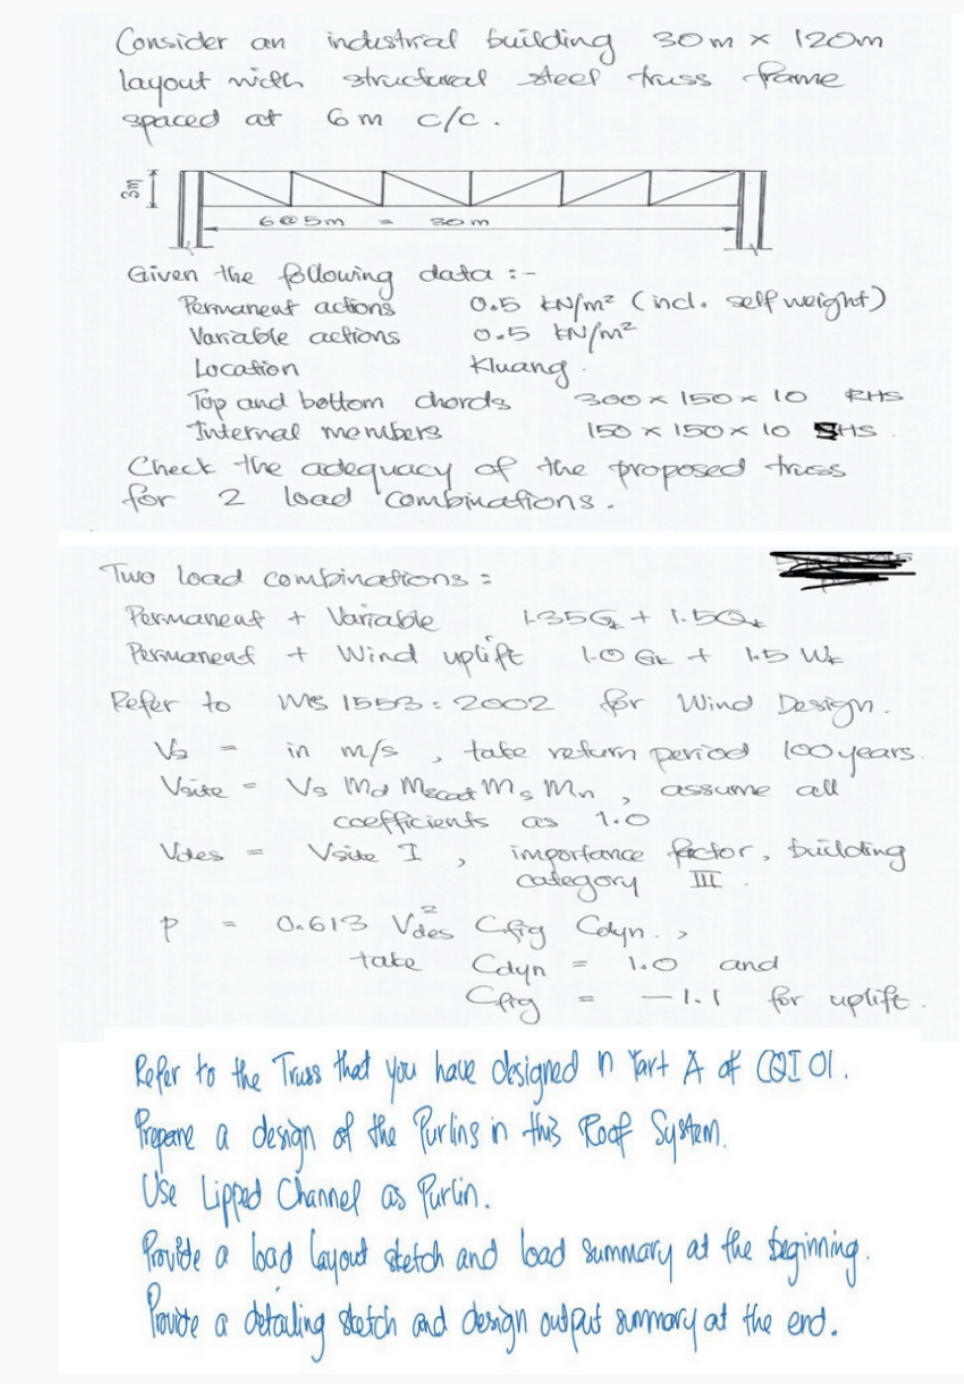 Consider an industrial building 30m × 120m
layout with structural steel truss frame
spaced at 6m c/c.
3m
6@5m = 30m
Given the following data :-
Permanent actions 0.5 kN/m² (incl. self weight)
Variable actions 0.5 kN/m²
Location Kluang.
Top and bottom chords 300 × 150 × 10 RHS
Internal members 150 × 150 × 10 SHS
Check the adequacy of the proposed truss
for 2 load combinations.
Two load combinations :
Permanent + Variable 1.35Gk + 1.5Qk
Permanent + Wind uplift 1.0 Gk + 1.5 Wk
Refer to MS 1553 : 2002 for Wind Design.
Vs = in m/s , take return period 100 years.
Vsite = Vs Md Mzcat Ms Mn , assume all
coefficients as 1.0
Vdes = Vsite I , importance factor, building
category III .
p = 0.613 Vdes² Cfig Cdyn. ,
take Cdyn = 1.0 and
Cfig = -1.1 for uplift.
Refer to the Truss that you have designed n Part A of CQI 01.
Prepare a design of the Purlins in this Roof System.
Use Lipped Channel as Purlin.
Provide a load layout sketch and load summary at the beginning.
Provide a detailing sketch and design output summary at the end.